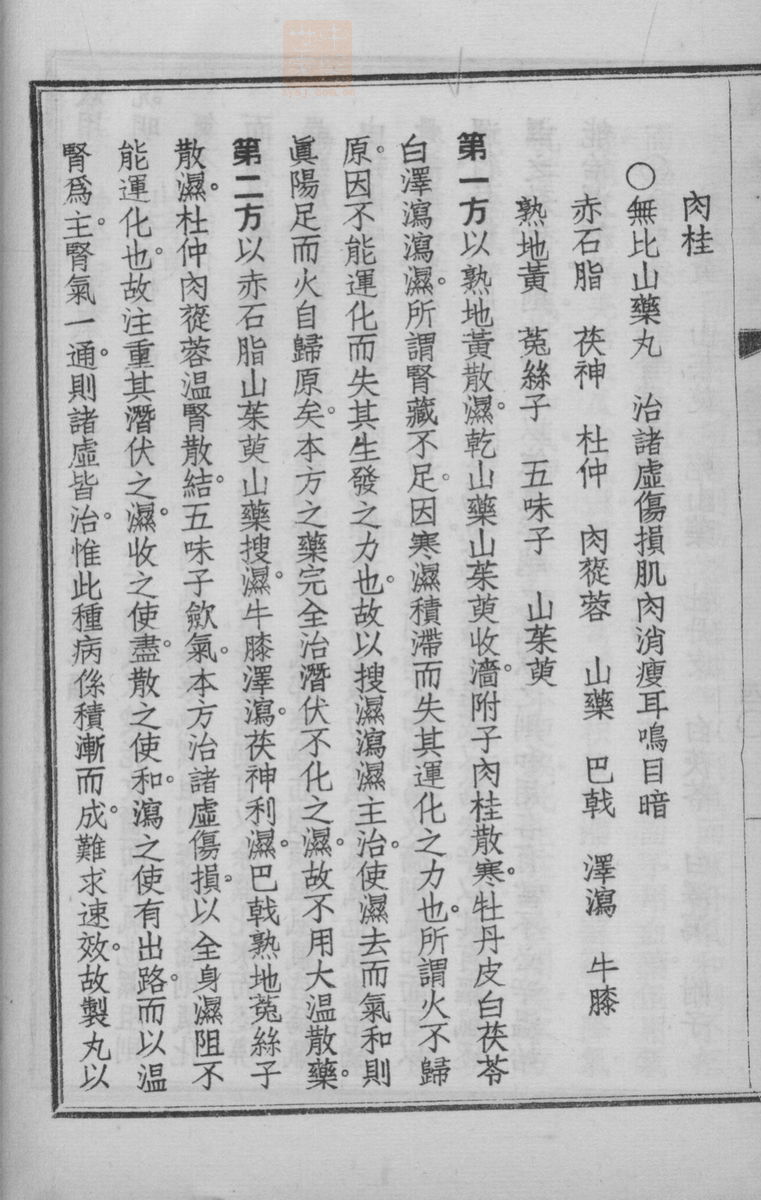 肉桂
○無比山藥丸　治諸虛傷損肌肉消瘦耳鳴目暗
赤石脂　茯神　杜仲　肉蓯蓉　山藥　巴戟　澤瀉　牛膝
熟地黃　菟絲子　五味子　山茱萸
第一方以熟地黃散濕。乾山藥山茱萸收濇。附子肉桂散寒。牡丹皮白茯苓
白澤瀉瀉濕。所謂腎藏不足。因寒濕積滯而失其運化之力也。所謂火不歸
原。因不能運化而失其生發之力也。故以搜濕瀉濕主治。使濕去而氣和則
眞陽足而火自歸原矣。本方之藥完全治潛伏不化之濕。故不用大温散藥。
第二方以赤石脂山茱萸山藥搜濕。牛膝澤瀉茯神利濕。巴戟熟地菟絲子
散濕。杜仲肉蓯蓉温腎散結。五味子歛氣。本方治諸虛傷損。以全身濕阻不
能運化也。故注重其潛伏之濕。收之使盡。散之使和。瀉之使有出路。而以温
腎爲主。腎氣一通。則諸虛皆治。惟此種病係積漸而成。難求速效。故製丸以